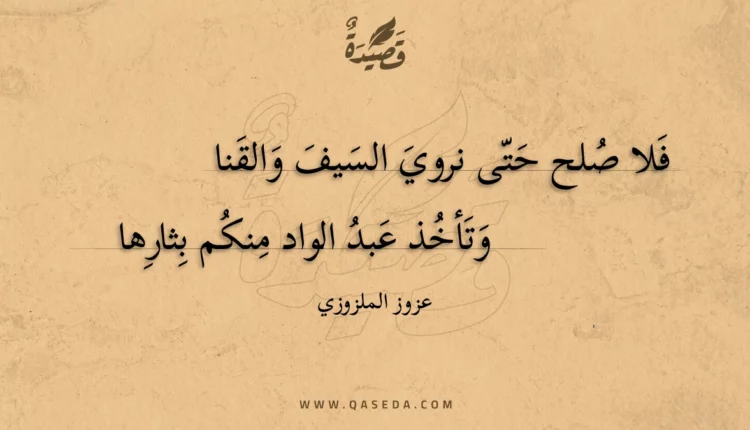 قَصِيْدَةٌ
فَلا صُلح حَتّى نرويَ السَيفَ وَالقَنا
وَتَأخُذ عَبدُ الواد مِنكُم بِثارِها
عزوز الملزوزي
WWW.QASEDA.COM